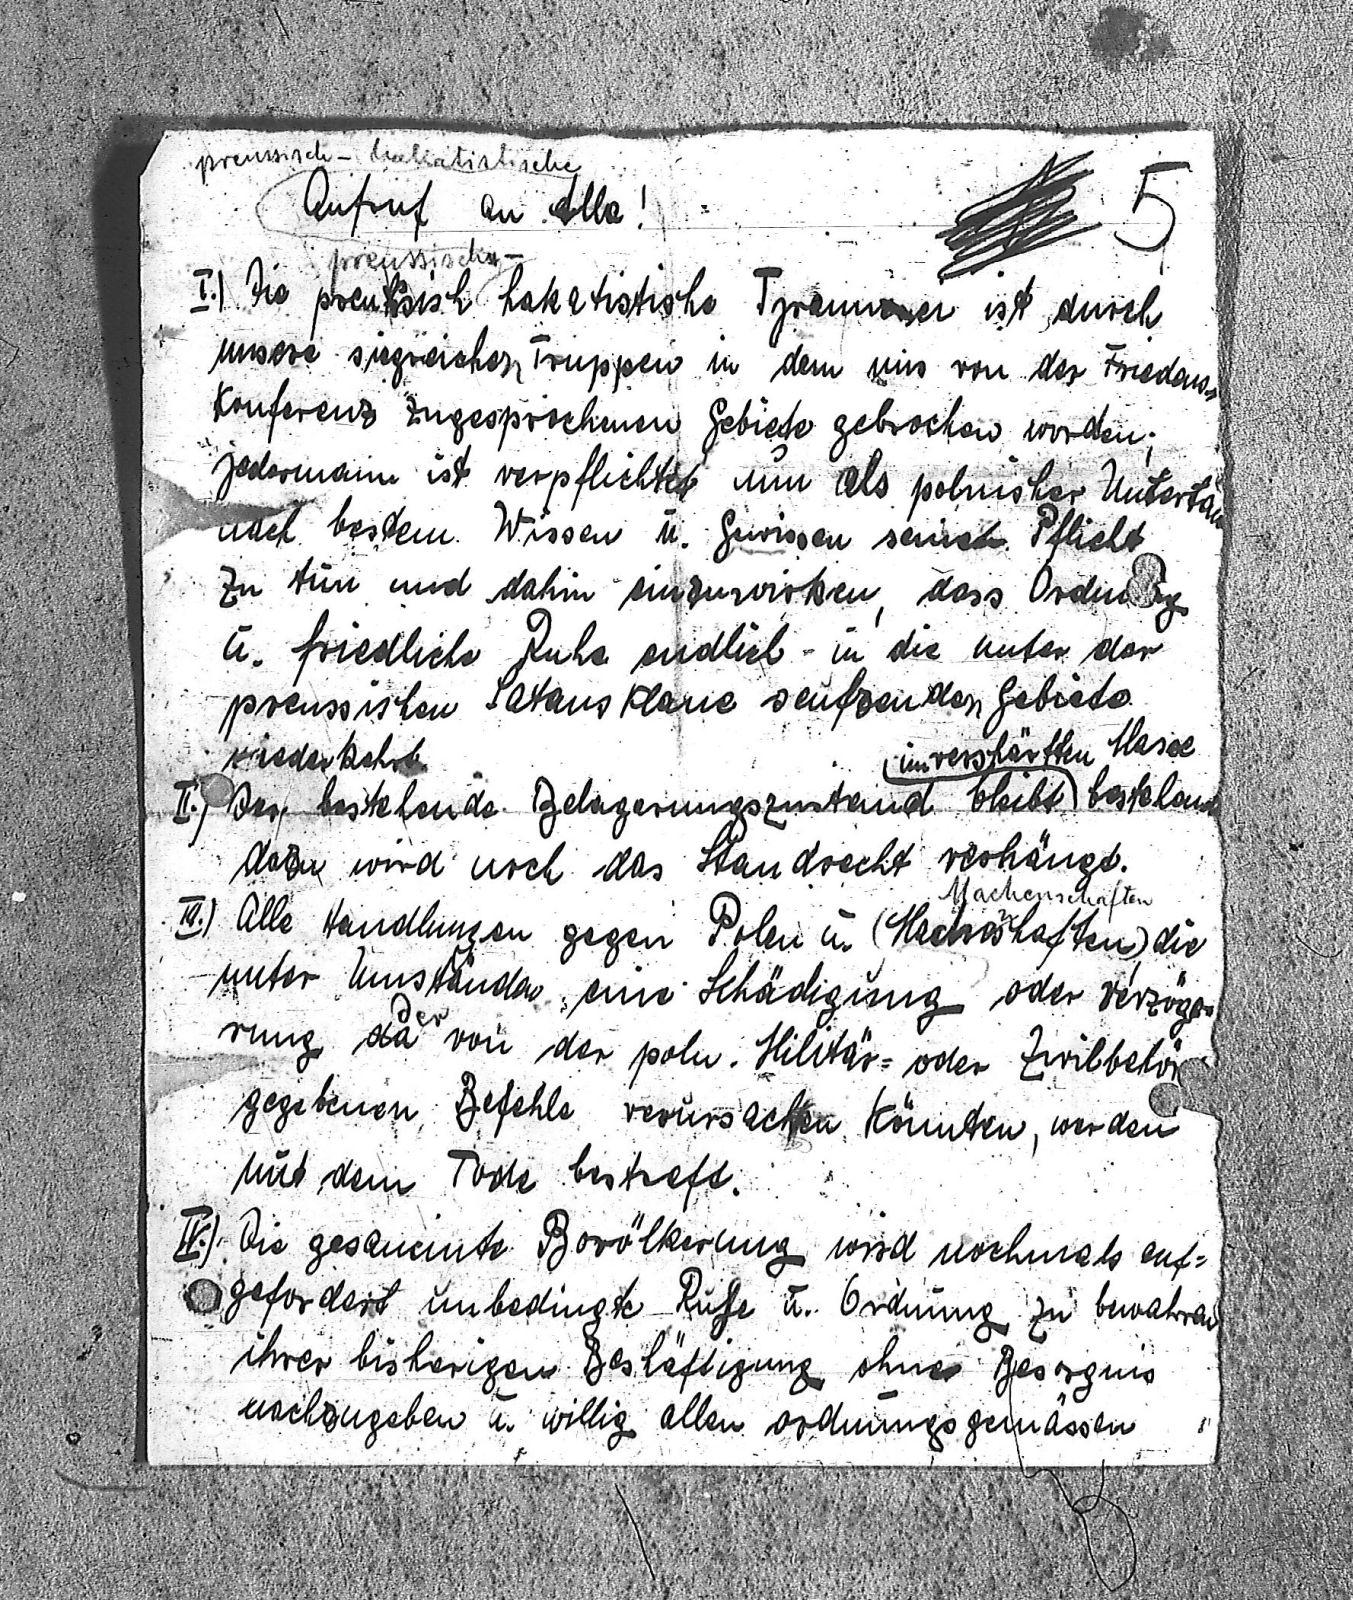 preussisch-hakatistische
Aufruf an Alle!
5
preussisch-
I.) Die preussisch hakatistische Tyrannei ist durch
unsere siegreichen Truppen in dem uns von der Friedens-
Konferenz zugesprochenen Gebiete gebrochen worden;
jedermann ist verpflichtet nun als polnischer Untertan
nach bestem Wissen u. Gewissen seine Pflicht
zu tun und dahin einzuwirken, dass Ordnung
u. friedliche Ruhe endlich - in die unter der
preussischen Satansklaue seufzenden Gebiete
wiederkehrt
im verstärkten Masse
II.) Der bestehende Belagerungszustand bleibt bestehen
dazu wird noch das Standrecht verhängt.
Machenschaften
III.) Alle Handlungen gegen Polen u. (Machenshaften) die
unter Umständen eine Schädigung oder Verzöge-
rung der von der poln. Militär= oder Zivilbehör
gegebenen Befehle verursachen könnten, werden
mit dem Tode bestraft.
IV.) Die gesammte Bevölkerung wird nochmals auf=
gefordert unbedingte Ruhe u. Ordnung zu bewahren
ihrer bisherigen Beshäftigung ohne Besorgnis
nachzugehen u. willig allen ordnungsgemässen